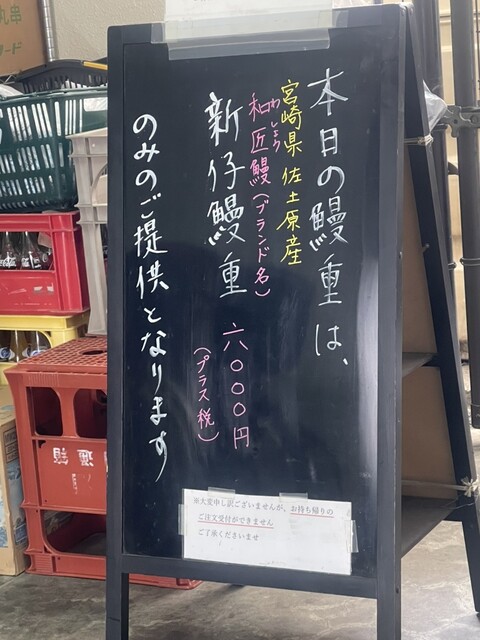 本日の鰻重は、
宮崎県佐土原産
わしょう
和匠鰻(ブランド名)
新仔鰻重 六〇〇〇円
(プラス税)
のみのご提供となります
※大変申し訳ございませんが、お持ち帰りの
ご注文受付ができません
ご了承くださいませ
丸串